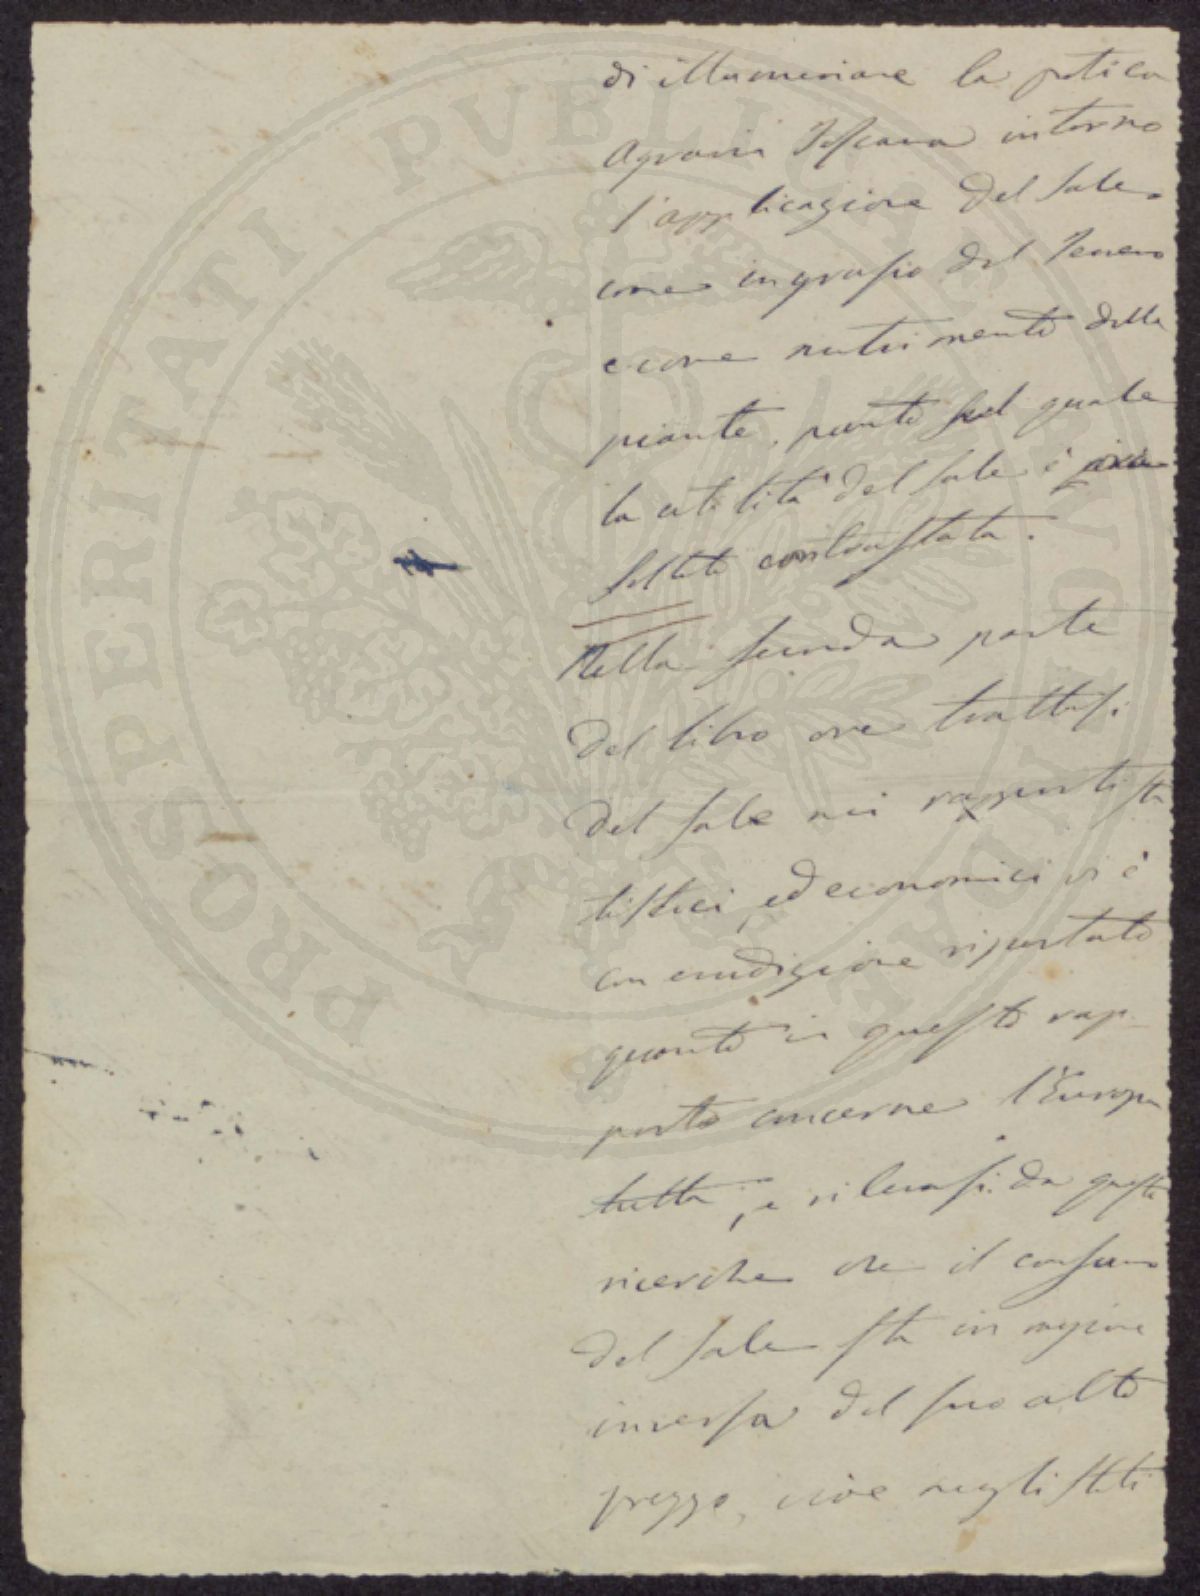 di illuminare la pratica
Agraria Toscana intorno
l'applicazione del sale
come ingrasso del Terreno
e come nutrimento delle
piante, punto sul quale
la utilità del sale è
soltanto contrastata.
Nella seconda parte
del libro ove trattasi
del sale nei rapporti sta
tistici, ed economici vi è
con erudizione riportato
quanto in questo rap
porto concerne l'Europa
tutta, e rilevasi da queste
ricerche che il consumo
del sale sta in ragione
inversa del suo alto
prezzo, cioè negli Stati
PROSPERITATI PVBLICAE AVGENDAE